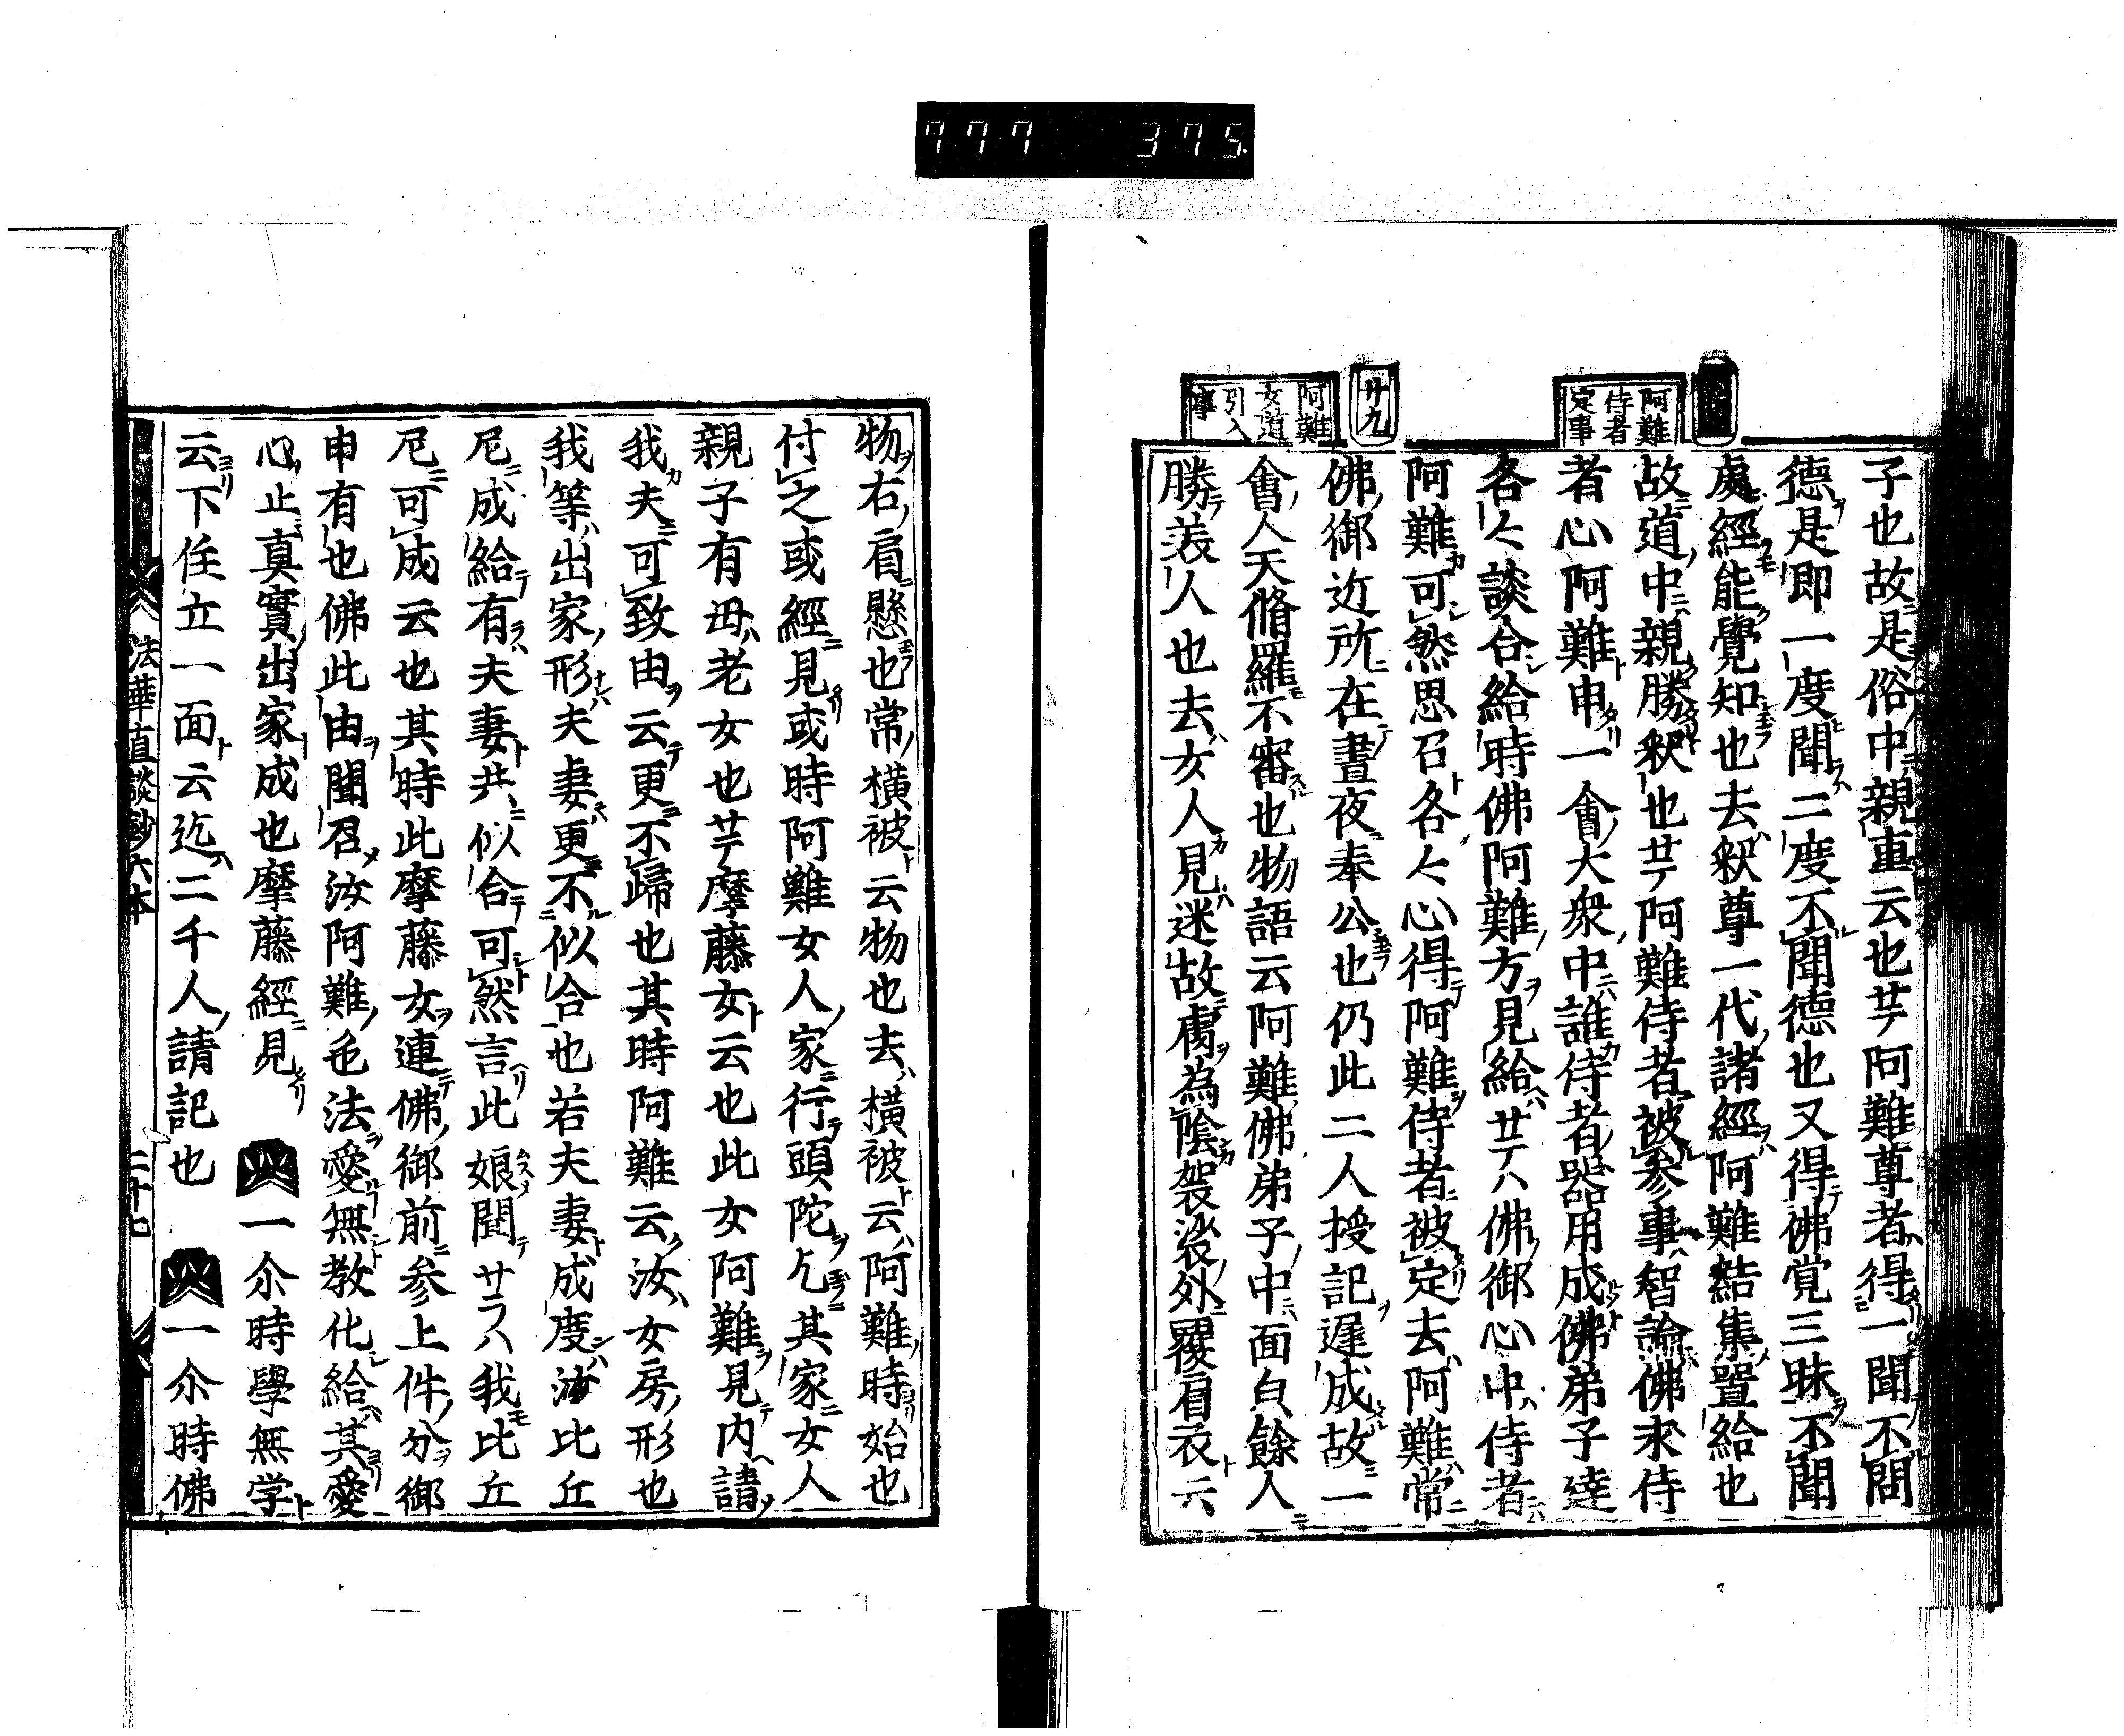 777 375
阿難
侍者
定事
廿九
阿難
女道
引入
事
子也故ニ是俗中ニ親重云也サテ阿難尊者ハ得一聞不問
德ヲ是即一度聞二度不聞德也又得テ佛覚三昧ヲ不聞
處經能覺知也去ハ釈尊一代ノ諸經ヲハ阿難結集メ置給也
故ニ道ノ中ニハ親勝釈也サテ阿難侍者ニ被参事ハ智論ニ佛求侍
者心阿難ト申タリ一會ノ大衆ノ中ニハ誰カ侍者ノ器用成佛弟子達
各々談合シ給時佛阿難ノ方ヲ見給ヘハサテハ佛ノ御心中ハ侍者ニハ
阿難カ可然思召ト各々心得テ阿難ヲ侍者ニ被定去ハ阿難ハ常ニ
佛ノ御近所ニ在テ晝夜ニ奉公也仍此二人授記ヲ遲成故ニ一
會ノ人天脩羅モ不審也物語云阿難ハ佛弟子ノ中ニハ面白餘人ニ
勝テ美人也去ハ女人カ見ハ迷故ニ膚ヲ為陰カ袈裟ノ外ニ覆肩衣ト云
物ヲ右ノ肩ニ懸也常ノ橫被ト云物也去ハ橫被ト云ハ阿難ノ時ヨリ始也
付之或經ニ見タリ或時阿難女人ノ家ニ行テ頭陀ヲ乞其家ニ女人
親子有母ハ老女也サテ摩藤女ト云也此女阿難ヲ見テ内ヘ請メ
我カ夫ニ可致由ヲ云テ更ニ不歸也其時阿難云ク汝ハ女房ノ形也
我等ハ出家ノ形ナレハ夫妻ニハ更ニ不似合也若夫妻ト成度ハ汝比丘
尼ニ成給テ有ラハ夫妻ト共ニ似合テ可然言ヘリ此娘聞テサラハ我モ比丘
尼ニ可成云也其時此摩藤女ヲ連テ佛ノ御前ニ参上件ノ分ヲ御
申有也佛此由ヲ聞召メ汝阿難ノ色法ヲ愛無ト教化シ給ヘハ其ヨリ愛
心ノ止真實ノ出家ト成也摩藤經ニ見タリ 一尒時學無学ト
云ヨリ下任立一面ト云迄ハ二千人ノ請記也 一尒時佛
法華直談鈔六本 二十七